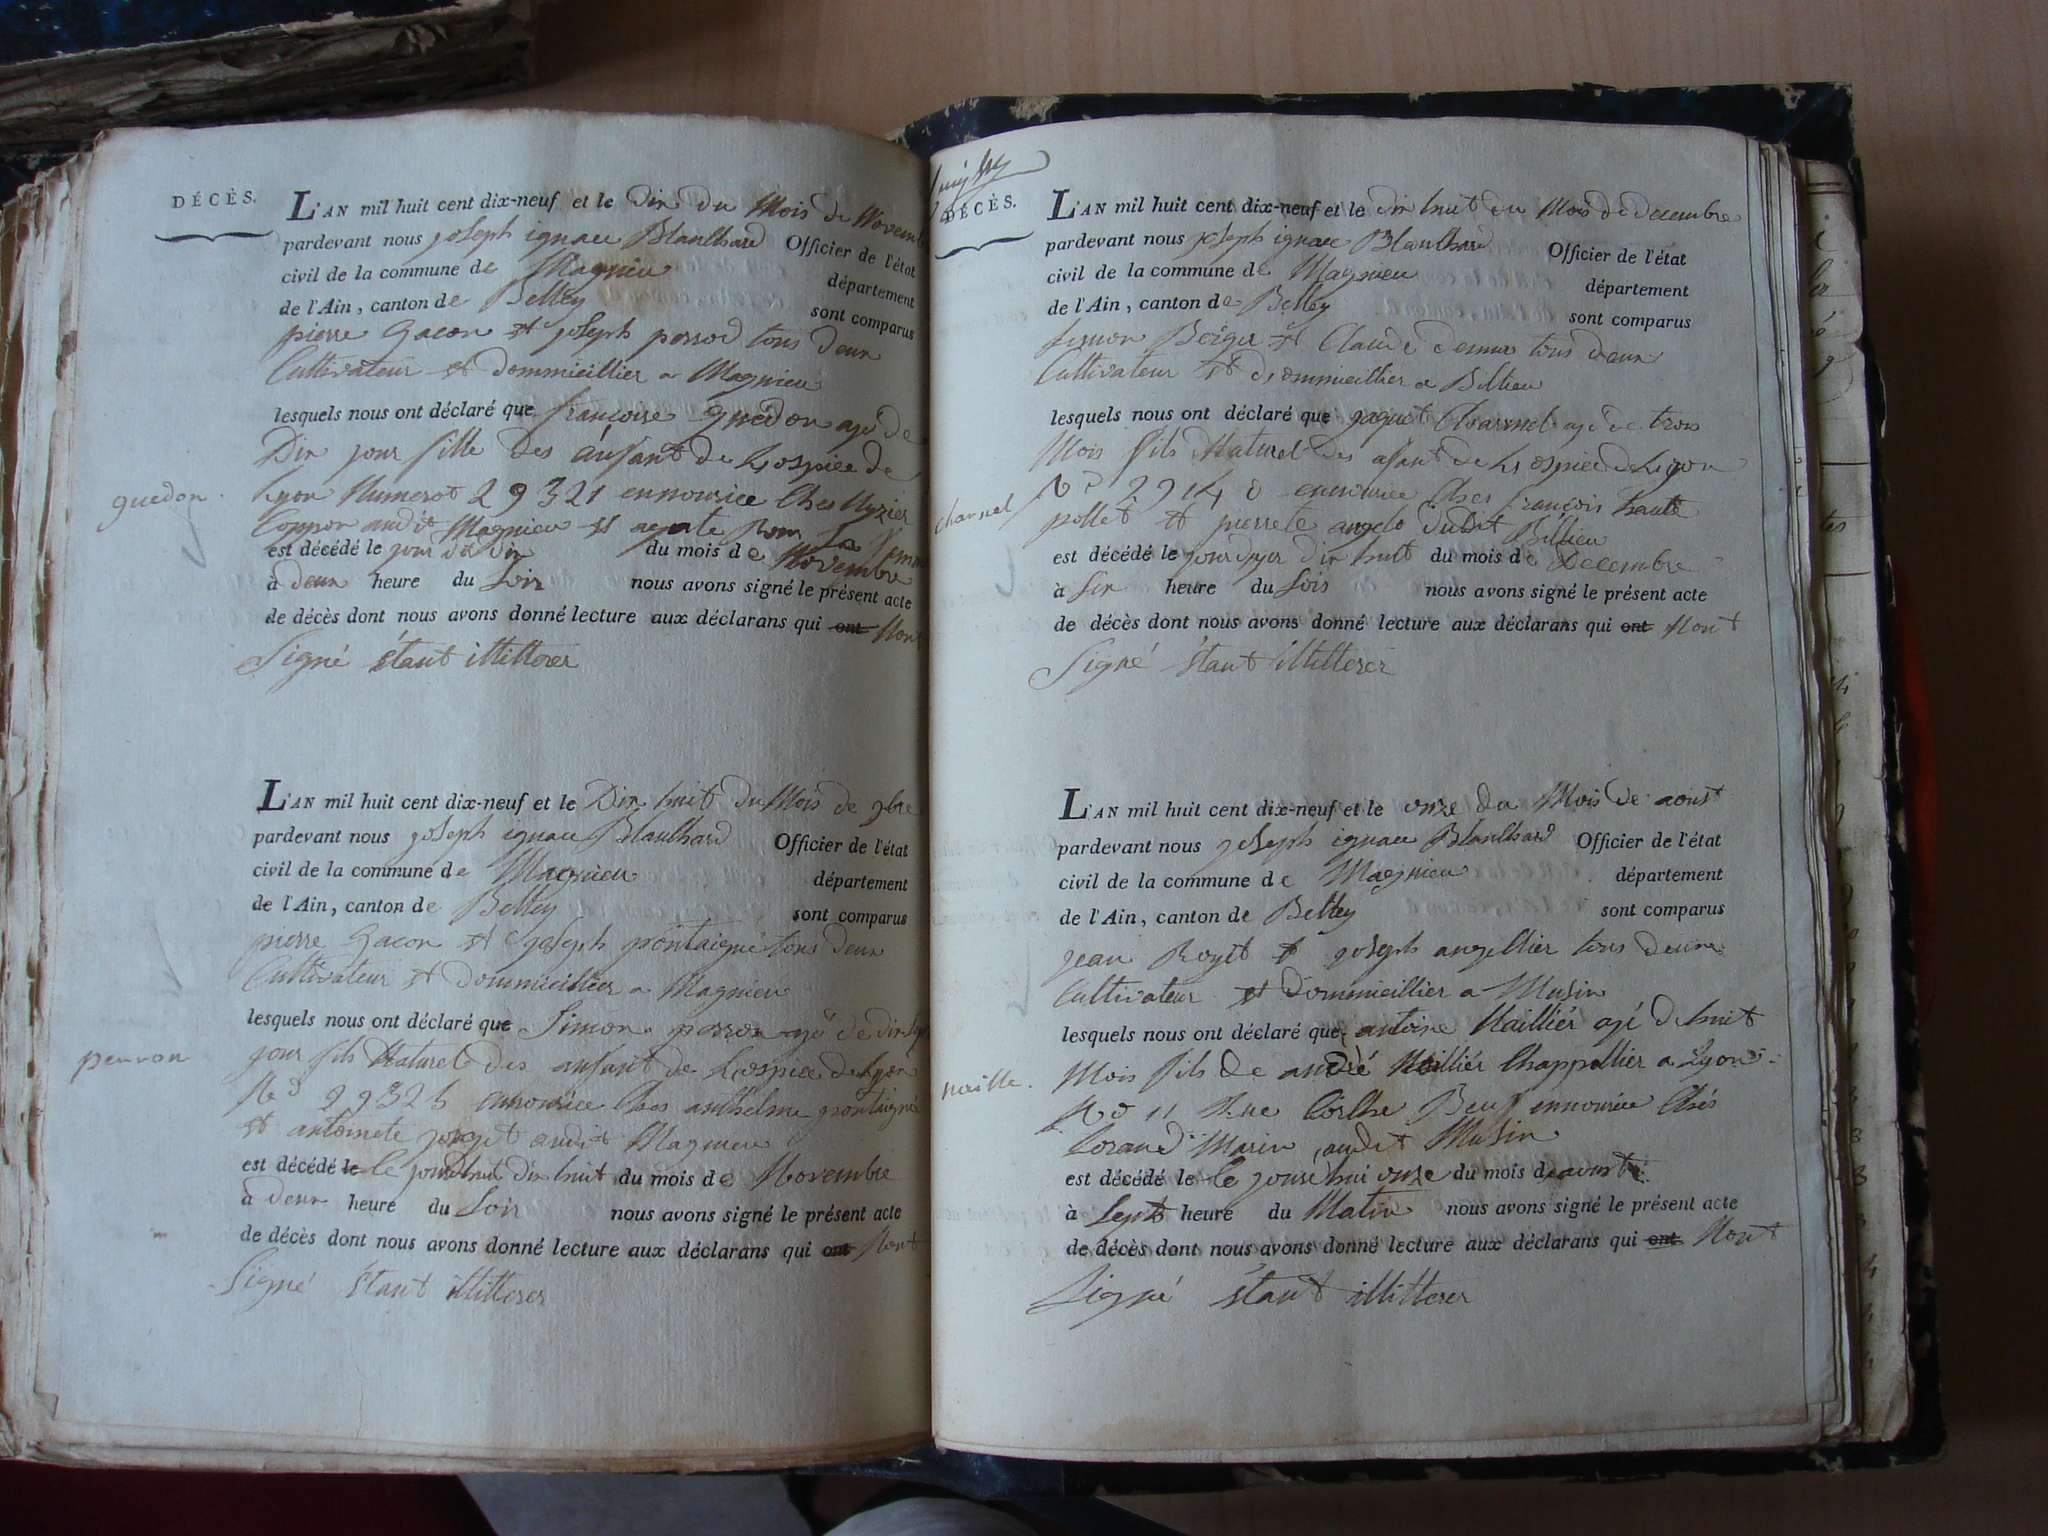 DÉCÈS.
L'AN mil huit cent dix-neuf et le Dix du Mois de Novemb
pardevant nous joseph ignace Blanchard Officier de l'état
civil de la commune de Magnieu département
de l'Ain, canton de Belley sont comparus
pierre Gacon et joseph perrod tous deux
Cultivateur et dommicillier a Magnieu
lesquels nous ont déclaré que françoise Guédon agé de
Dix jour fille des ánfant de Lospice de
guedon.
Lyon Numerot 29321 ennourice Ches
audit Magnieu et
est décédé le jour du mois de Novembre
à deux heure du Soir nous avons signé le présent acte
de décès dont nous avons donné lecture aux déclarans qui ont Nont
Signé étant illitterer
L'AN mil huit cent dix-neuf et le Dix huit du Mois de 9bre
pardevant nous joseph ignace Blanchard Officier de l'état
civil de la commune de Magnieu département
de l'Ain, canton de Belley sont comparus
pierre Gacon et joseph pontaigné tous deux
Cultivateur et dommicillier a Magnieu
lesquels nous ont déclaré que Simon perron agé de dix
perron
jour fils Naturel des anfant de Lospice de Lyon
No ennourice Ches anthelme pontaigné
et antoinete audit Magnieu
est décédé le le jourdhui dix huit du mois de Novembre
à deux heure du Soir nous avons signé le présent acte
de décès dont nous avons donné lecture aux déclarans qui ont Nont
Signé étant illitterer
DÉCÈS.
L'AN mil huit cent dix-neuf et le dix huit du Mois de decembre
pardevant nous joseph ignace Blanchard Officier de l'état
civil de la commune de Magnieu département
de l'Ain, canton de Belley sont comparus
Simon Berger et Claude tous deux
Cultivateur et dommicillier a Billieu
lesquels nous ont déclaré que jaque Charmel agé de trois
Mois fils Naturel des afant de Lospice de Lyon
charmel
No ennourice Ches françois
pollet et pierrete Billieu
est décédé le dix huit du mois de Decembre
à Six heure du Soir nous avons signé le présent acte
de décès dont nous avons donné lecture aux déclarans qui ont Nont
Signé étant illitterer
L'AN mil huit cent dix-neuf et le onze du Mois de aoust
pardevant nous joseph ignace Blanchard Officier de l'état
civil de la commune de Magnieu département
de l'Ain, canton de Belley sont comparus
jean Royet et joseph angellier tous deux
Cultivateur et dommicillier a Musin
lesquels nous ont déclaré que antoine Naillier agé de huit
Mois fils de andré Naillier Chappellier a Lyon
naille.
No 11 Rue Beuf ennourice Chés
Marin audit Musin
est décédé le le jourdhui onze du mois de aoust
à Septs heure du Matin nous avons signé le présent acte
de décès dont nous avons donné lecture aux déclarans qui ont Nont
Signé étant illitterer